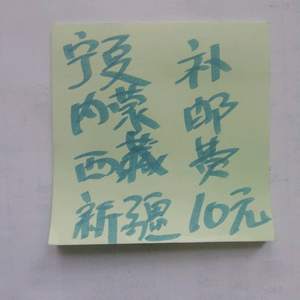 宁夏 补
内蒙 邮
西藏 费
新疆 10元